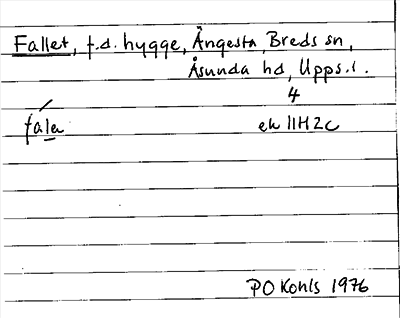 Fallet, f.d. hygge, Ängesta, Breds sn,
Åsunda hd, Upps.l.
4
fálа ek 11H2c
PO Kohls 1976